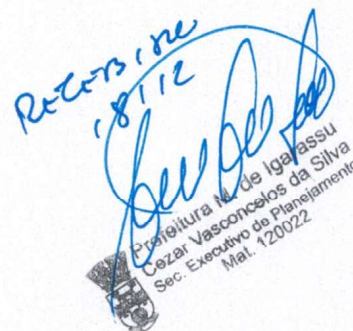 RECEBI
18/12
Prefeitura M. de Igarassu
Cezar Vasconcelos da Silva
Sec. Executivo de Planejamento
Mat. 120022